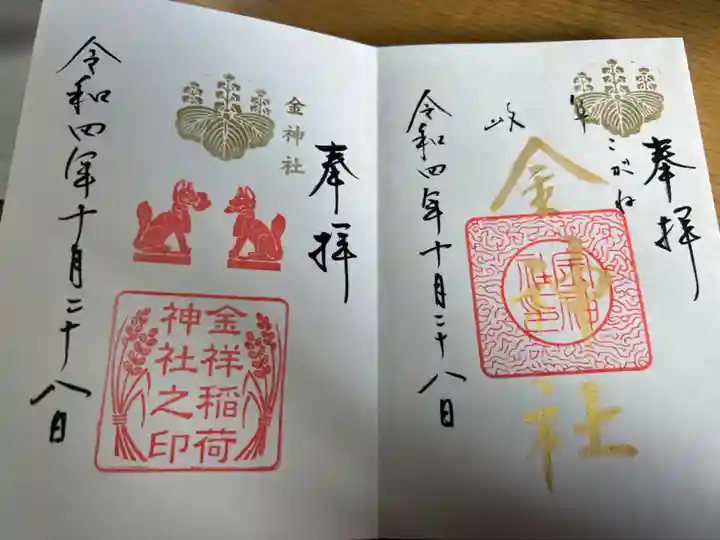 奉拝
岐阜
こがね
金神社
令和四年十月二十八日
奉拝
金神社
金祥稲荷
神社之印
令和四年十月二十八日